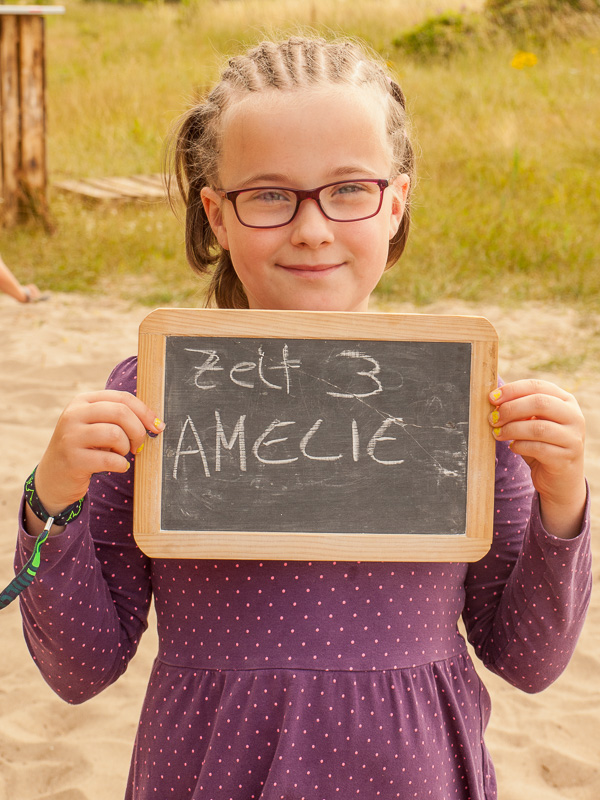 Zelt 3
AMELIE